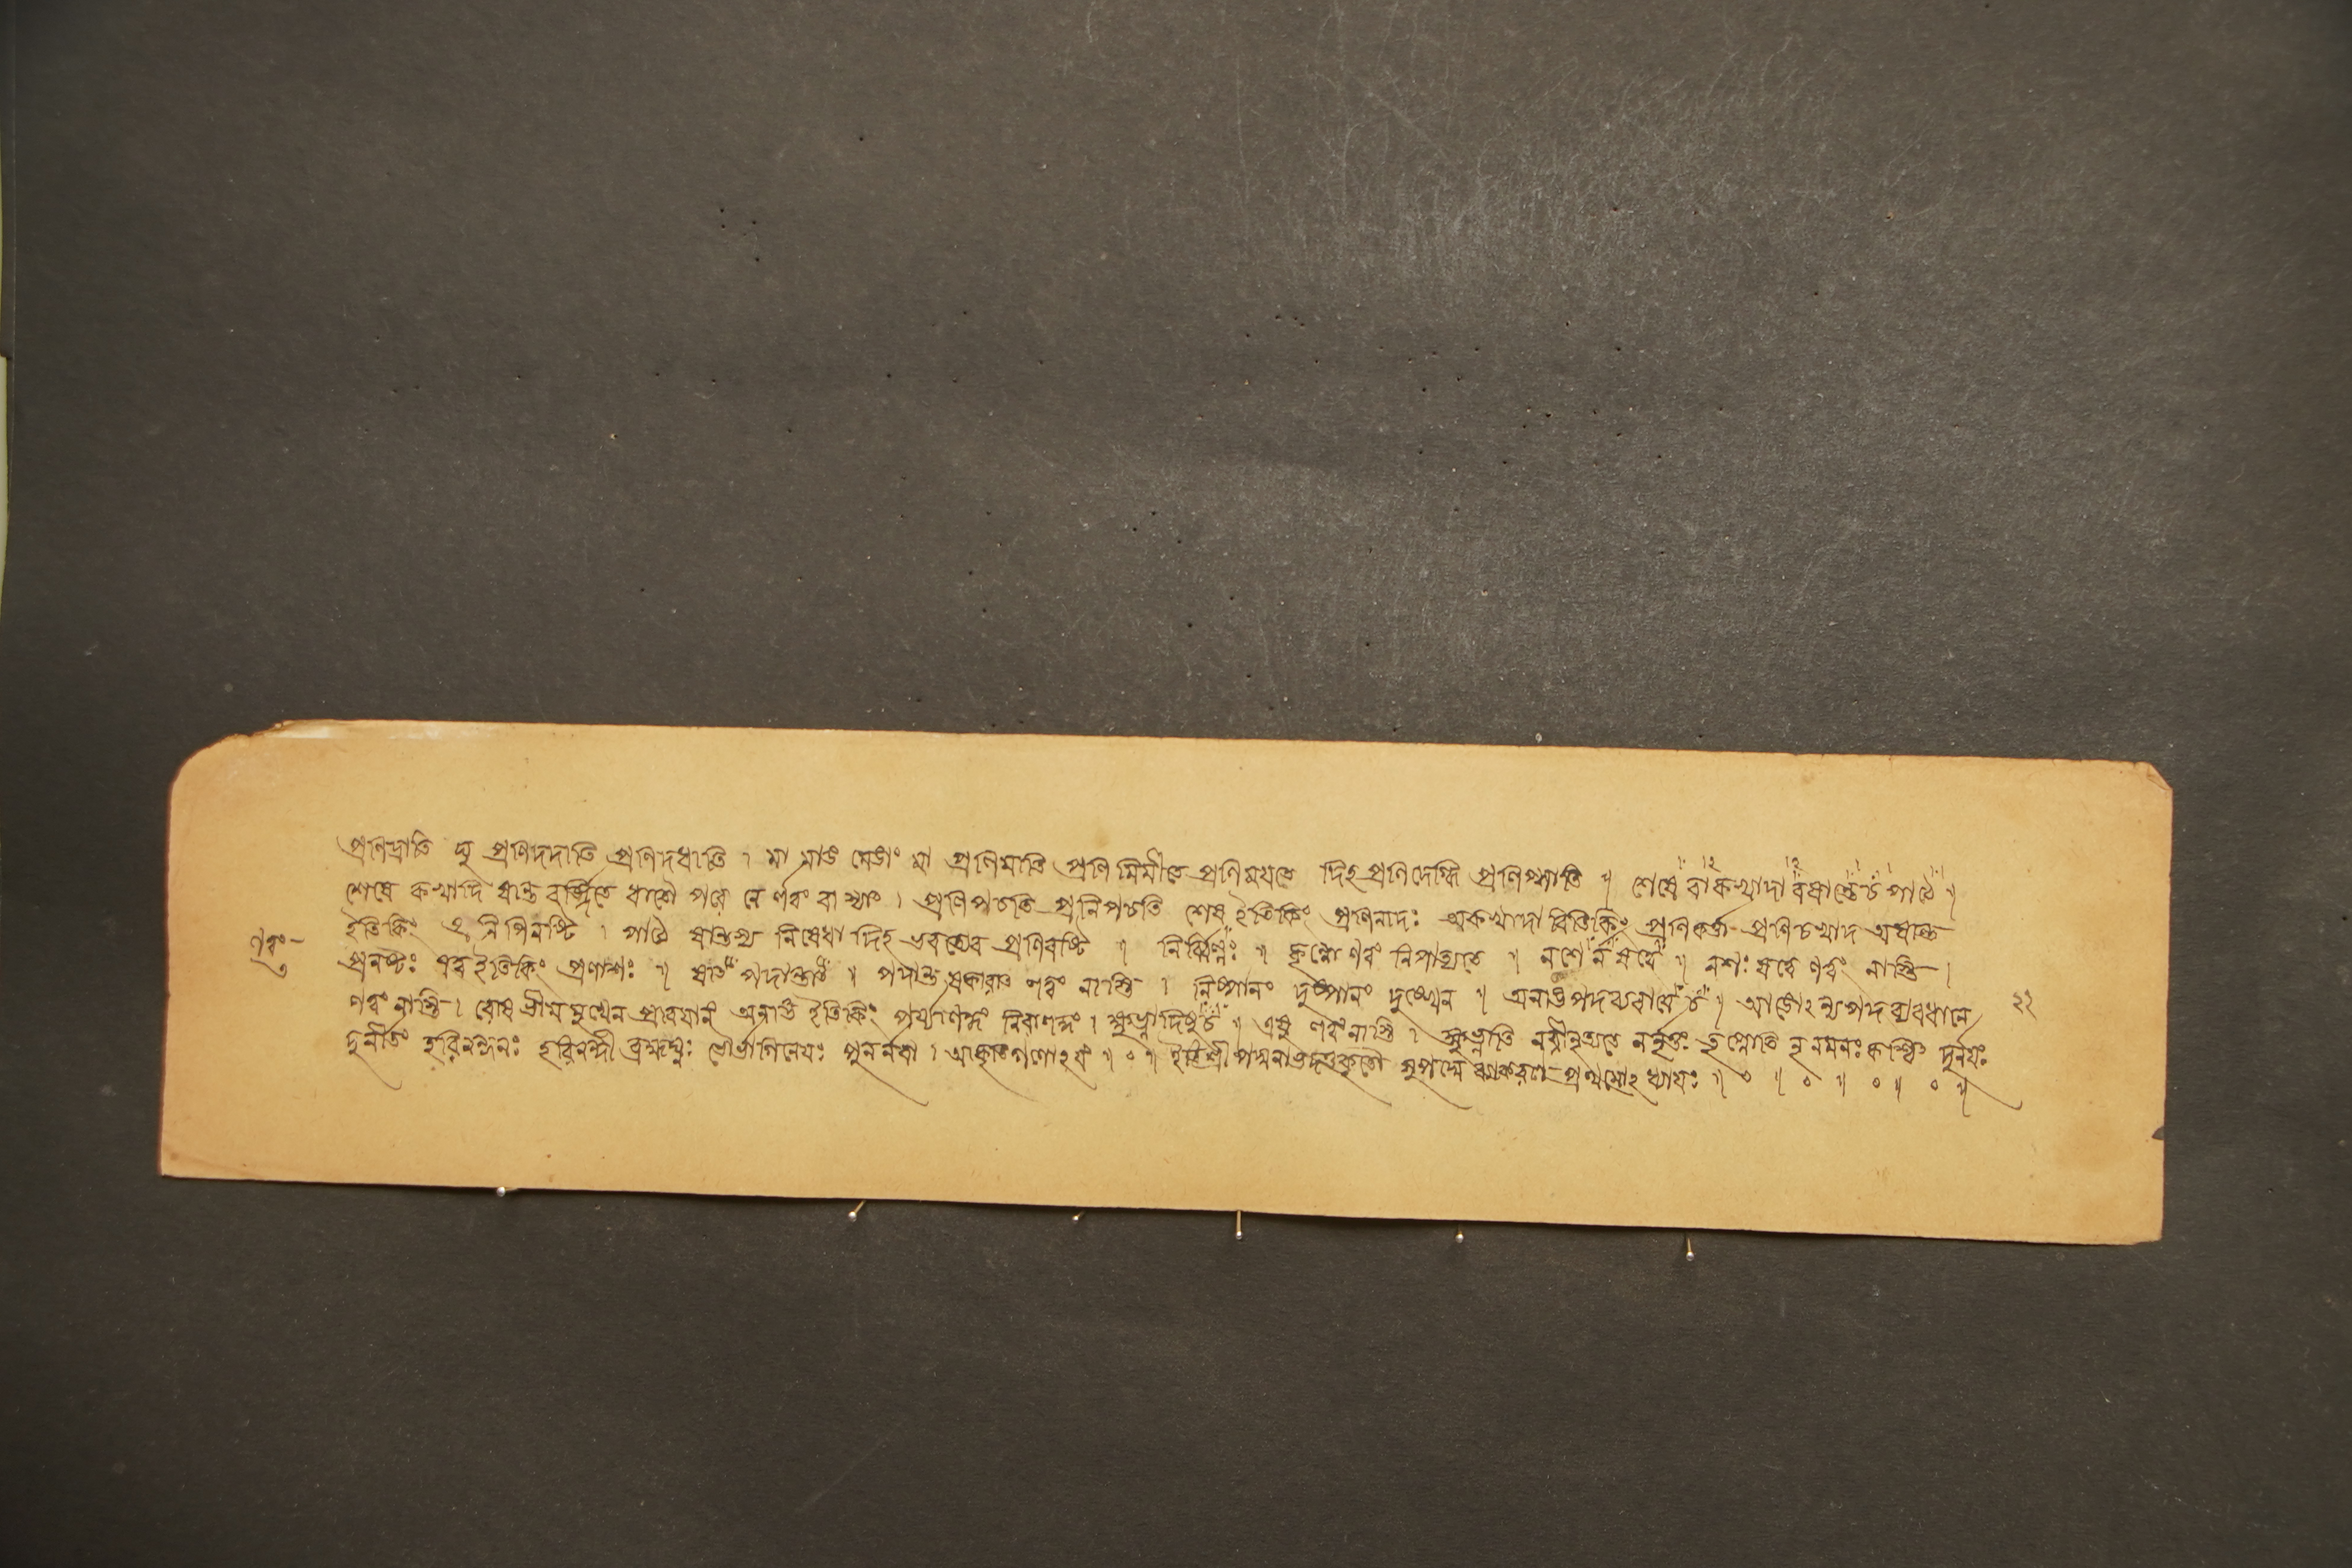 প্রনিদ্রাতি দু প্রণিদদাতি প্রণিদধাতি । মা মাঙ মেঙাং মা প্রণিমাতি প্রণিমিমীতে প্রণিময়তে দিহ প্রণিদেগ্ধি প্রণিপ্সাতি ॥ শেষে বাকখাদাবষান্তে চ পাঠে ॥
শেষে কখাদি ষান্ত বর্জ্জিতে ধাতৌ পরে নে র্ণত্বং বা স্যাৎ । প্রণিপচতি প্রনিপচতি শেষ ইতিকিং প্রণিনাদঃ অকখাদাবিতিকিং প্রণিকর্ত্তা প্রণিচখাদ অষান্ত
ইতিকিং প্রনিপিনষ্টি । পাঠে ষান্তস্য নিষেধাদিহ ভবত্যেব প্রণিবষ্টি ॥ নির্ব্বিণ্ণঃ ॥ ণত্বং নিপাত্যতে ॥ নশে র্ন ষত্বে ॥ নশঃ ষত্বে ণত্বং নাস্তি ।
প্রনষ্টঃ ষত্ব ইতিকিং প্রণাশঃ ॥ ষাৎ পদান্তাৎ ॥ পদান্ত ষকারাৎ ণত্বং নাস্তি । নিষ্পানং দুষ্পানং ॥ অনাঙপদব্যবায়ে চ ॥ আঙোঽন্যপদ ব্যবধানে
ণত্বং নাস্তি । রোষ ভীম মুখেন অনাঙ ইতিকিং পর্য্যাণদ্ধং নিরাণদ্ধং । ক্ষুভ্নাদিষু চ ॥ এষু ণত্বং নাস্তি । ক্ষুভ্নাতি নরীনৃত্যতে তৃপ্নোতি নৃনমনঃ দুর্নয়ঃ
দুর্নীতিঃ হরিনন্দনঃ হরিনন্দী পুনর্নবা । আকৃতিগণোঽয়ং ॥ ০ ॥ ইতি শ্রী পদ্মনাভদত্তকৃতৌ সুপদ্মে ব্যাকরণে প্রথমোঽধ্যায়ঃ ॥ ০ ॥ ০ ॥ ০ ॥ ০ ॥
ণত্বং
২২